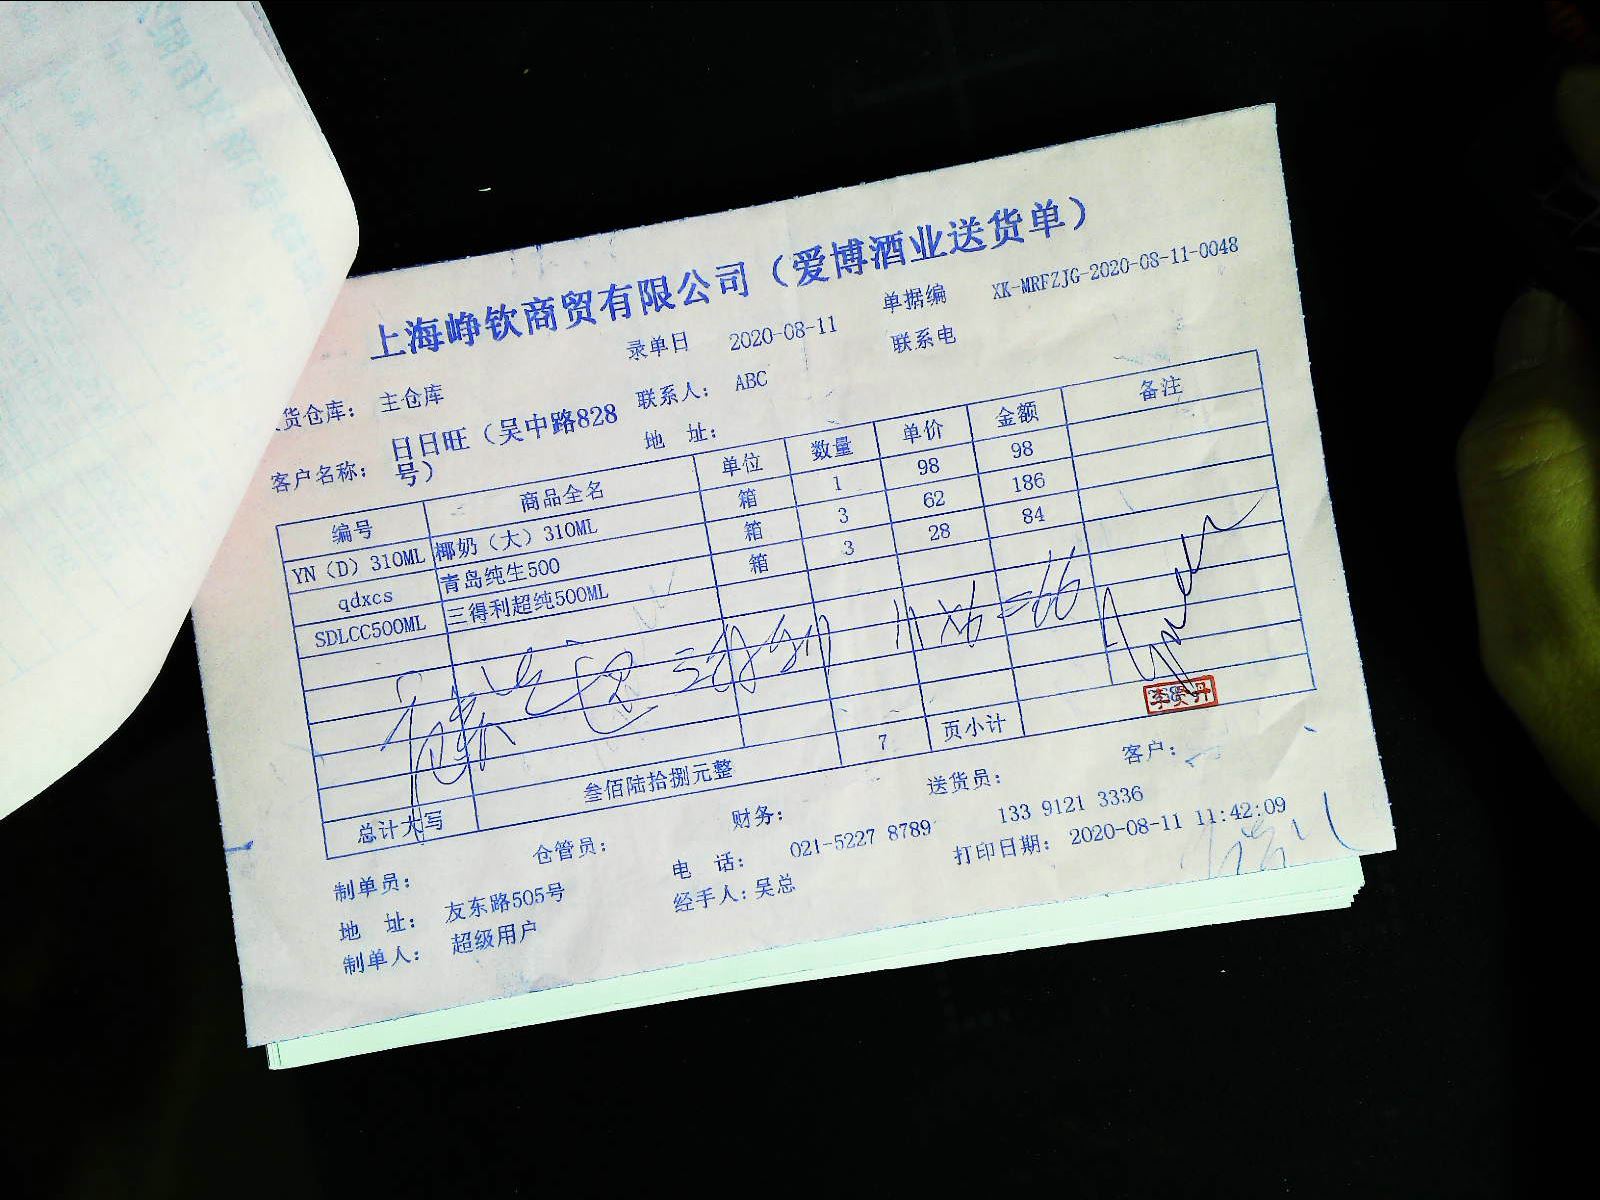 上海峥钦商贸有限公司（爱博酒业送货单）
货仓库： 主仓库 录单日 2020-08-11 单据编 XK-MRFZJG-2020-08-11-0048
客户名称： 日日旺（吴中路828号） 联系人： ABC 联系电
地 址：
编号 商品全名 单位 数量 单价 金额 备注
YN（D）310ML 椰奶（大）310ML 箱 1 98 98
qdxcs 青岛纯生500 箱 3 62 186
SDLCC500ML 三得利超纯500ML 箱 3 28 84
总计大写 叁佰陆拾捌元整 7 页小计
制单员： 仓管员： 财务： 送货员： 客户：
地 址： 友东路505号 电 话： 021-5227 8789 133 9121 3336
制单人： 超级用户 经手人：吴总 打印日期： 2020-08-11 11:42:09